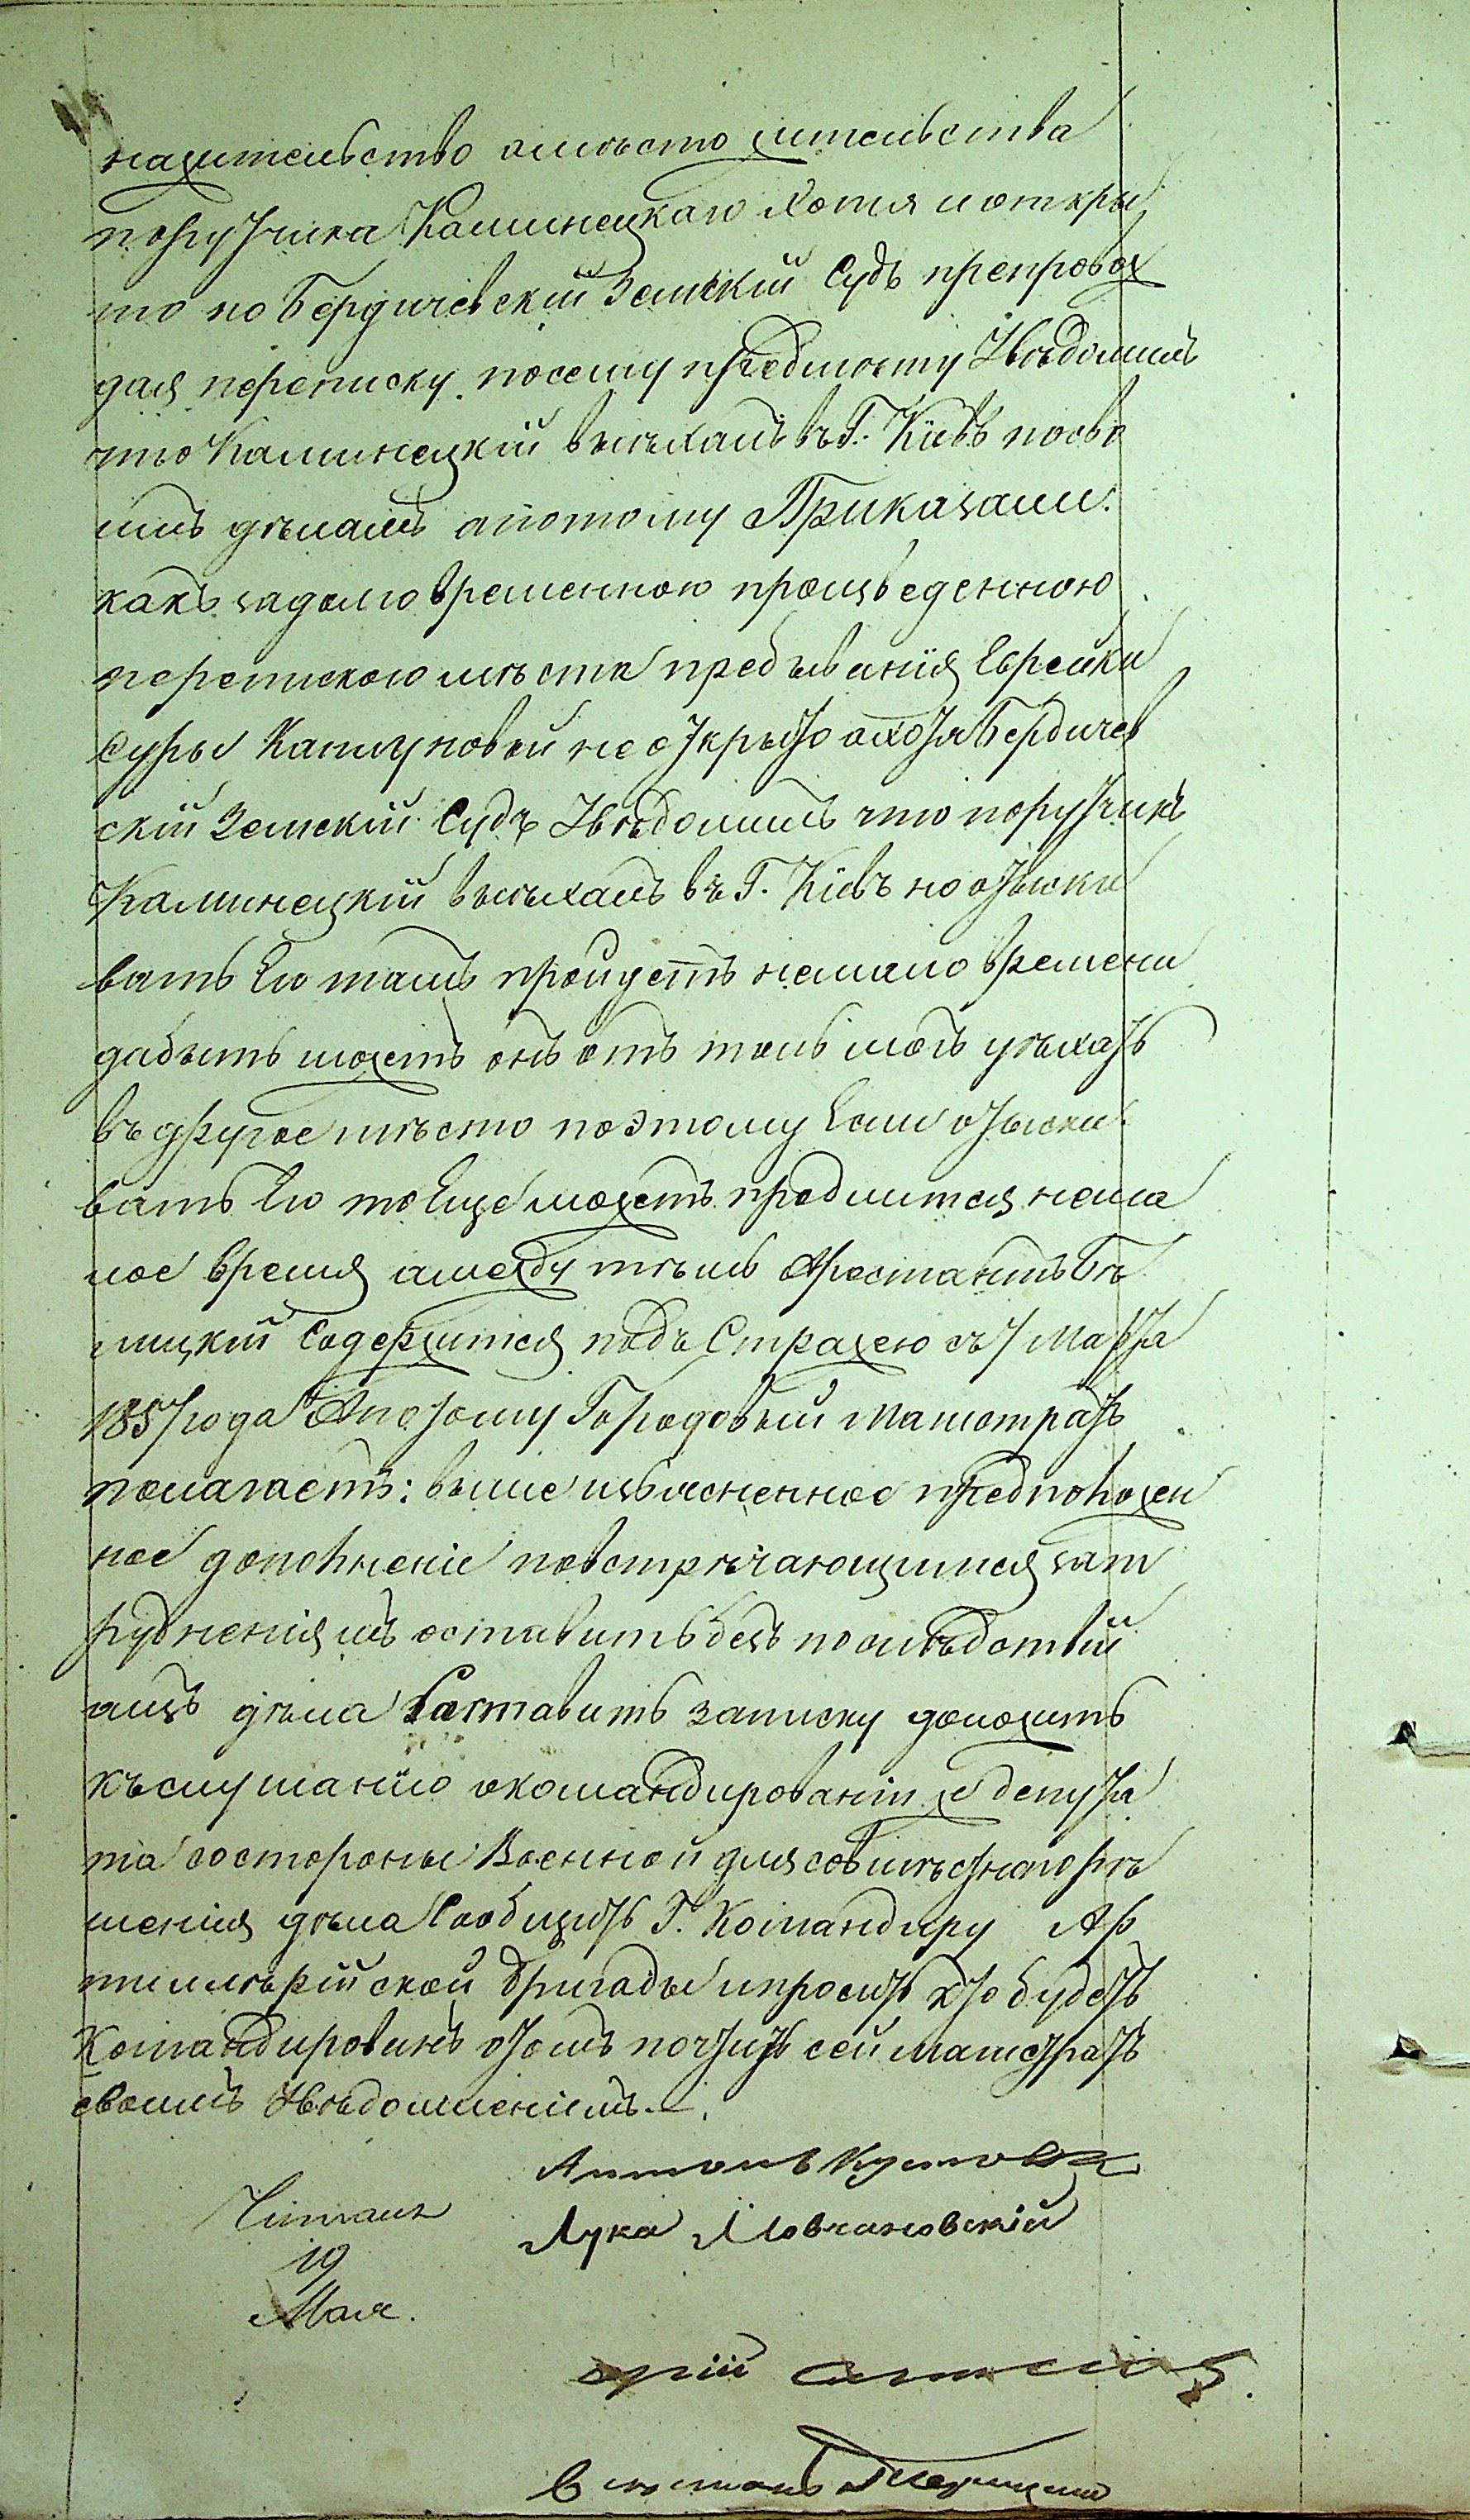 нажительство амѣсто жительства
поручика Каминецкаго хотя и откры
то но Бердичевскій Земскій Судъ препровож
дая переписку посему предмѣту Увѣдомилъ
что Каминецкій выѣхалъ въ Г. Кіевъ посво
имъ дѣламъ апотому Приказали:
какъ задолговременною произведенною
перепискою мѣста пребыванія Еврейки
Суры Капуновой не открыто ахотя Бердичев
скій Земскій Судъ Увѣдомилъ что поручикъ
Каминецкій выѣхалъ въ Г. Кіевъ но отыски
вать Его тамъ пройдетъ немало времени
дабыть можетъ онъ отъ толь могъ уѣхать
въ другое мѣсто поэтому Если отыски
вать Его то Еще можетъ продлится нема
лое время амежду тѣмъ Арестантъ Бѣ
лицкій Содержится подъ Стражею съ 7 Марта
1857 года Апотому Городовый Магистратъ
полагаетъ: выше изъясненное предположен
ное дополненіе повстрѣчающимся зат
рудненіямъ оставить безъ послѣдствій
аизъ дѣла Составить записку доложить
къслушанію окомандированіи же депута
та состороны Военной для совмѣстнаго рѣ
шенія дѣла Сообщить Г. Командиру Ар
тиллерійской бригады ипросить кто будетъ
Командированъ отомъ почтить сей магистратъ
своимъ Увѣдомленіемъ.
Антонъ
Лука Мовчановскій
Читалъ
19
Мая.